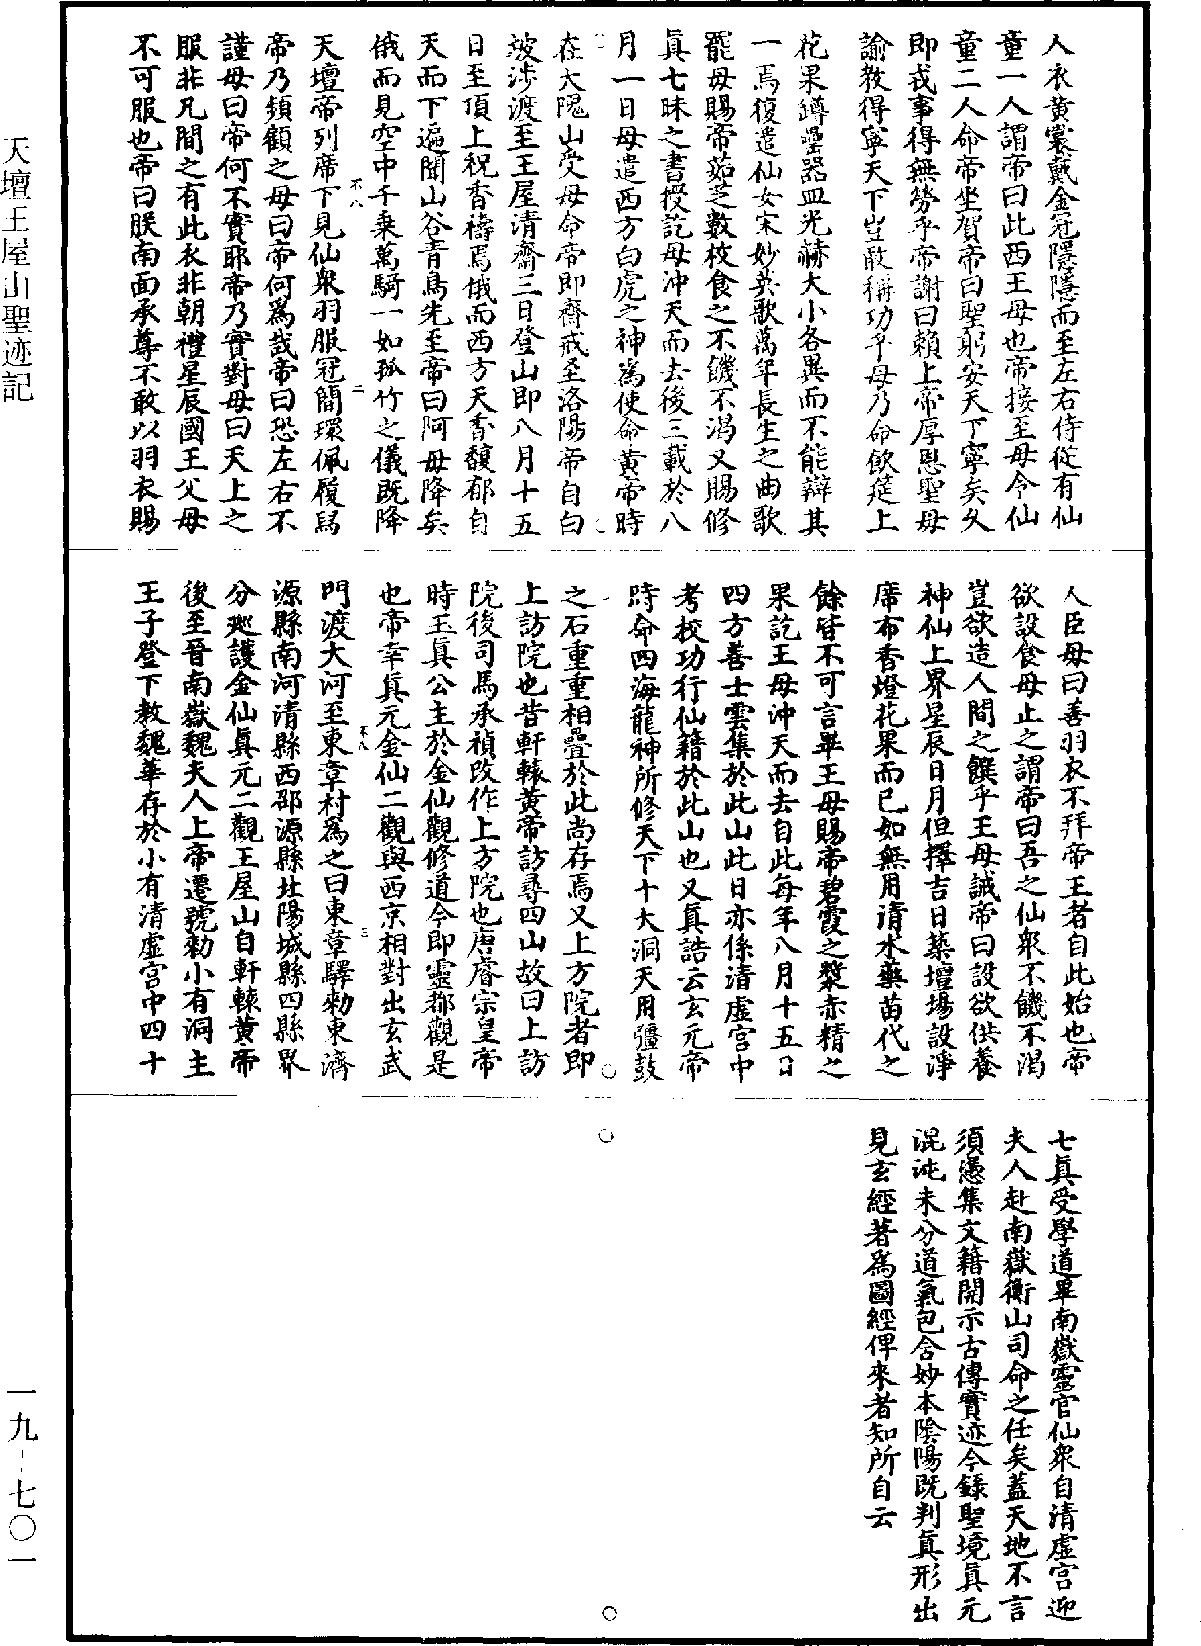 人衣黃裳戴金冠隱隱而至左右侍從有仙
童一人謂帝曰此西王母也帝接至母令仙
童二人命帝坐賀帝曰聖躬安天下寧矣久
即戎事得無勞乎帝謝曰賴上帝厚恩聖母
諭教得寧天下豈敢稱功乎母乃命飲筵上
花果罇罍器皿光赫大小各異而不能辯其
一焉復遣仙女宋妙英歌萬年長生之曲歌
罷母賜帝茹芝數枚食之不饑不渴又賜修
真七昧之書授訖母沖天而去後三載於八
月一日母遣西方白虎之神為使命黃帝時
在大隗山受母命帝即齋戒至洛陽帝自白
坡涉渡至王屋清齋三日登山即八月十五
日至頂上祝香禱焉俄而西方天香馥郁自
天而下遍聞山谷青鳥先至帝曰阿母降矣
俄而見空中千乘萬騎一如孤竹之儀既降
天壇帝列席下見仙眾羽服冠簡環佩履舄
帝乃頻顧之母曰帝何為哉帝曰恐左右不
謹母曰帝何不實耶帝乃實對母曰天上之
服非凡間之有此衣非朝禮星辰國王父母
不可服也帝曰朕南面承尊不敢以羽衣賜
人臣母曰善羽衣不拜帝王者自此始也帝
欲設食母止之謂帝曰吾之仙眾不饑不渴
豈欲造人間之饌乎王母誡帝曰設欲供養
神仙上界星辰日月但擇吉日築壇場設淨
席布香燈花果而已如無用清水藥苗代之
餘皆不可言畢王母賜帝碧霞之漿赤精之
果訖王母沖天而去自此每年八月十五日
四方善士雲集於此山此日亦係清虛宮中
考校功行仙籍於此山也又真誥云玄元帝
時命四海龍神所修天下十大洞天用彊鼓
之石重重相疊於此尚存焉又上方院者即
上訪院也昔軒轅黃帝訪尋四山故曰上訪
院後司馬承禎改作上方院也唐睿宗皇帝
時玉真公主於金仙觀修道今即靈都觀是
也帝幸真元金仙二觀與西京相對出玄武
門渡大河至東章村為之曰東章驛勅東濟
源縣南河清縣西邵源縣北陽城縣四縣界
分廵護金仙真元二觀王屋山自軒轅黃帝
後至晉南嶽魏夫人上帝遷號勅小有洞主
王子登下教魏華存於小有清虛宮中四十
七真受學道畢南嶽靈官仙眾自清虛宮迎
夫人赴南嶽衡山司命之任矣蓋天地不言
須憑集文籍開示古傳實迹今錄聖境真元
混沌未分道氣包含妙本陰陽既判真形出
見玄經著為圖經俾來者知所自云
天壇王屋山聖迹記
一九-七〇一